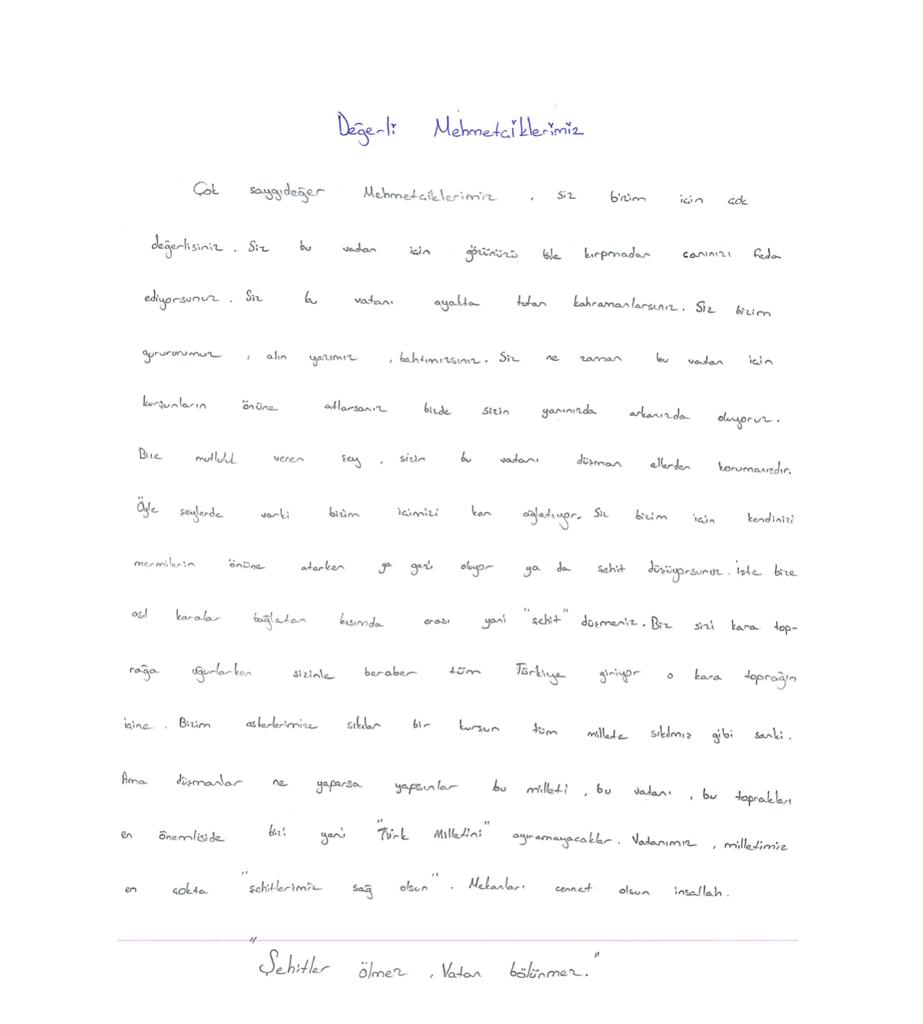 Değerli Mehmetciklerimiz
Çok saygıdeğer Mehmetciklerimiz , siz bizim için çok
değerlisiniz . Siz bu vatan için gözünüzü bile kırpmadan canınızı feda
ediyorsunuz . Siz bu vatanı ayakta tutan kahramanlarsınız . Siz bizim
gururumuz , alın yazımız , bahtımızsınız . Siz ne zaman bu vatan için
kurşunların önüne atlarsanız bizde sizin yanınızda arkanızda oluyoruz .
Bize mutluluk veren şey , sizin bu vatanı düşman ellerden korumanızdır.
Öyle şeylerde varki bizim içimizi kan ağlatıyor. Siz bizim için kendinizi
mermilerin önüne atarken ya gazi oluyor ya da şehit düşüyorsunuz . İşte bize
asıl karalar bağlatan kısımda orası yani "şehit" düşmeniz . Biz sizi kara top-
rağa uğurlarken sizinle beraber tüm Türkiye giriyor o kara toprağın
içine . Bizim askerlerimize sıkılan bir kurşun tüm millete sıkılmış gibi sanki .
Ama düşmanlar ne yaparsa yapsınlar bu milleti , bu vatanı , bu toprakları
en önemliside bizi yani "Türk Milletini" ayıramayacaklar . Vatanımız , milletimiz
en çokta "şehitlerimiz sağ olsun" . Mekanları cennet olsun inşallah .
"Şehitler ölmez , Vatan bölünmez."